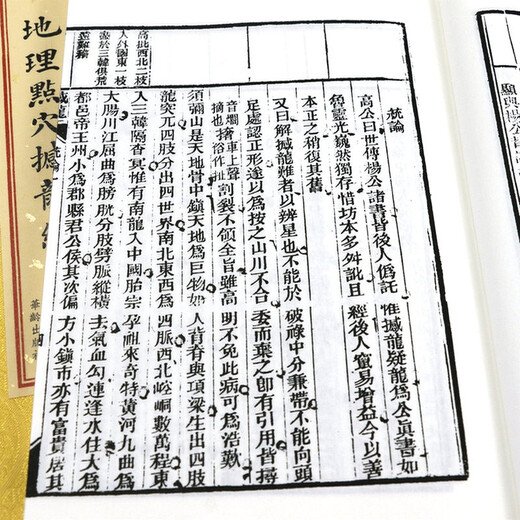 統論
高公曰世傳楊公諸書皆後人僞託惟撼龍疑龍爲公眞書如
魯靈光巍然獨存惜坊本多舛訛且經後人竄易增益今以善
本正之稍復其舊
又曰解撼龍難者以辨星也不能於破祿中分兼帶不能向頭
足處認正形遂以爲按之山川不合委而棄之卽有引用皆撏
車上聲
撦也俗作扯
割裂不領全旨雖高明不免此病可爲浩歎
須彌山是天地骨中鎭天地爲巨物如人背脊與項梁生出四肢
龍突兀四肢分出四世界南北東西爲四脈西北崆峒數萬程東
入三韓隔杳冥惟有南龍入中國胎宗孕祖來奇特黃河九曲爲
大腸川江屈曲爲膀胱分肢劈脈縱橫去氣血勾連逢水住大爲
都邑帝王州小爲郡縣君公侯其次偏方小鎭市亦有富貴居其
高批西北二枝
入外國東一枝
盡於三韓俱荒
遠難稽
撼龍
統論
地理點穴撼龍
華齡出版